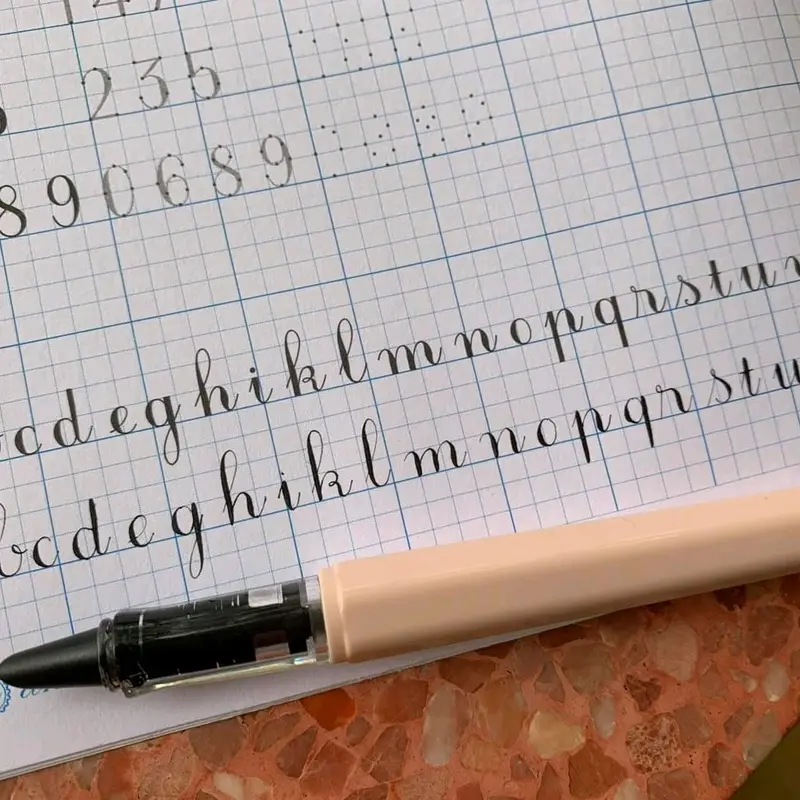 2 3 5
8 9 0 6 8 9
c d e g h i k l m n o p q r s t u
b c d e g h i k l m n o p q r s t u